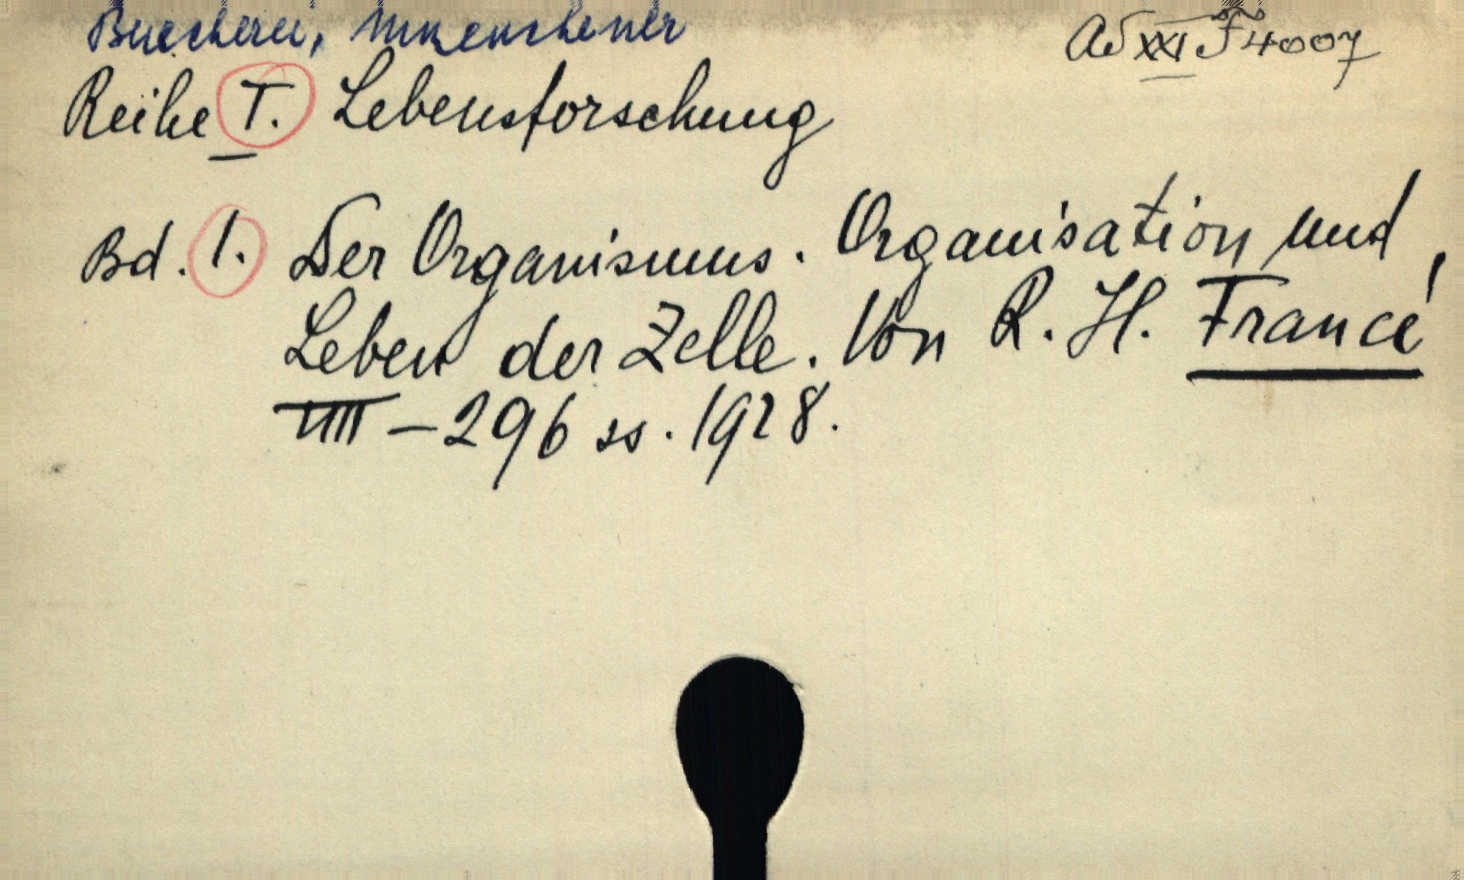 Buecherei, Muenchener
Ad XXI F 4007
Reihe I. Lebensforschung
Bd. 1. Der Organismus. Organisation und
Leben der Zelle. Von R. H. Francé,
VIII - 296 ss. 1928.